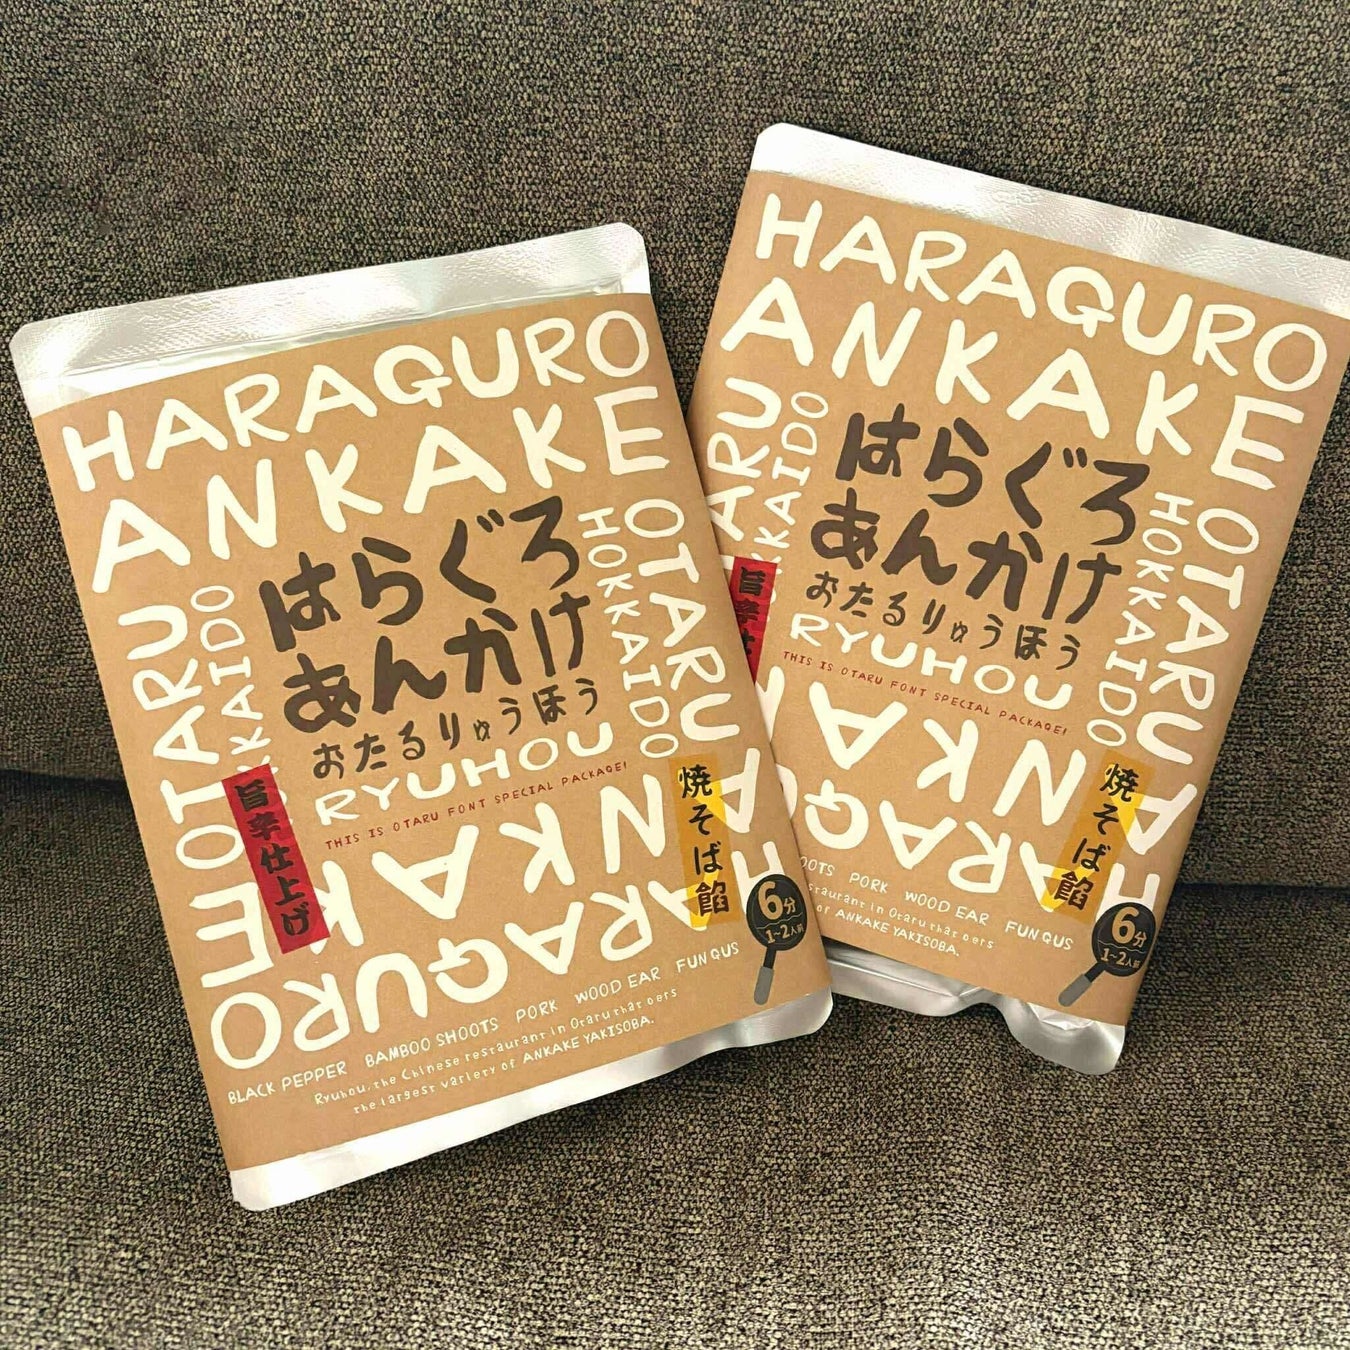 HARAGURO
ANKAKE
OTARU
HOKKAIDO
はらぐろ
あんかけ
おたるりゅうほう
RYUHOU
THIS IS OTARU FONT SPECIAL PACKAGE!
OTARU
KKAIDO
旨辛仕上げ
焼そば餡
6分
1~2人前
ANKAKE
HARAGURO
BLACK PEPPER BAMBOO SHOOTS PORK WOOD EAR FUNGUS
Ryuhou, the Chinese restaurant in Otaru that oers
the largest variety of ANKAKE YAKISOBA.
HARAGURO
ANKAKE
OTARU
HOKKAIDO
はらぐろ
あんかけ
おたるりゅうほう
RYUHOU
THIS IS OTARU FONT SPECIAL PACKAGE!
ARU
KKAIDO
旨辛仕
焼そば餡
6分
1~2人前
NKA
ARAGU
OOTS PORK WOOD EAR FUNGUS
staurant in Otaru that oers
of ANKAKE YAKISOBA.